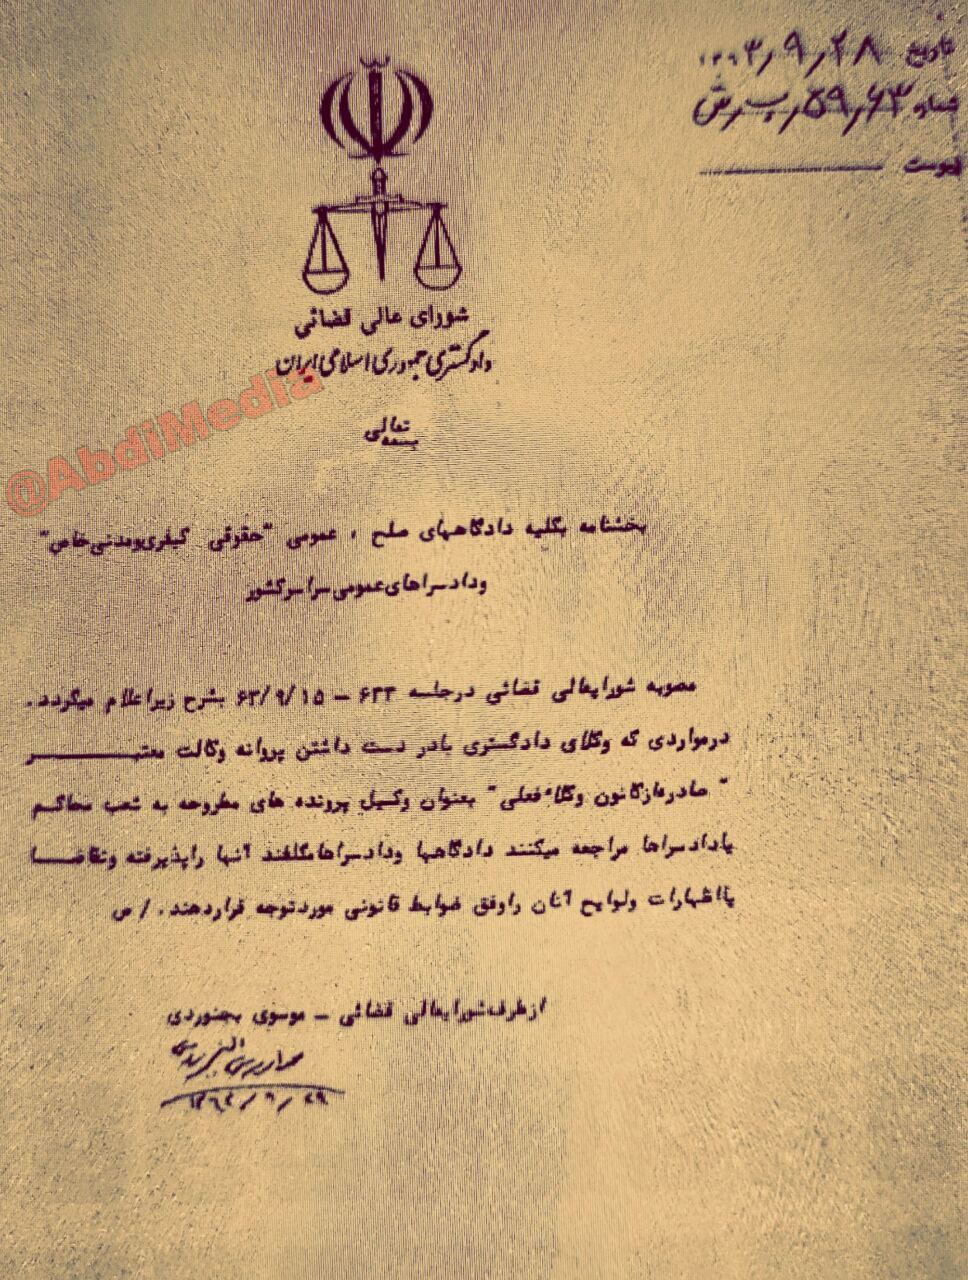 تاریخ ۱۳۶۳٫۹٫۲۸
شماره ۵۹٫۶۳٫ب٫ش
پیوست
شورای عالی قضائی
دادگستری جمهوری اسلامی ایران
بسمه تعالی
@AbdiMedia
بخشنامه بکلیه دادگاههای صلح ، عمومی "حقوقی کیفری ومدنی خاص"
ودادسراهای عمومی سراسر کشور
مصوبه شورایعالی قضائی درجلسه ۶۳۳ – ۶۳/۹/۱۵ بشرح زیر اعلام میگردد .
درمواردی که وکلای دادگستری بادر دست داشتن پروانه وکالت معتبـــر
" صادره از کانون وکلاء فعلی " بعنوان وکیل پرونده های مطروحه به شعب محاکم
یادادسراها مراجعه میکنند دادگاهها ودادسراها مکلفند آنها راپذیرفته وتقاضـــا
یااظهارات ولوایح آنان راوفق ضوابط قانونی موردتوجه قراردهند . / ص
از طرف شورایعالی قضائی – موسوی بجنوردی